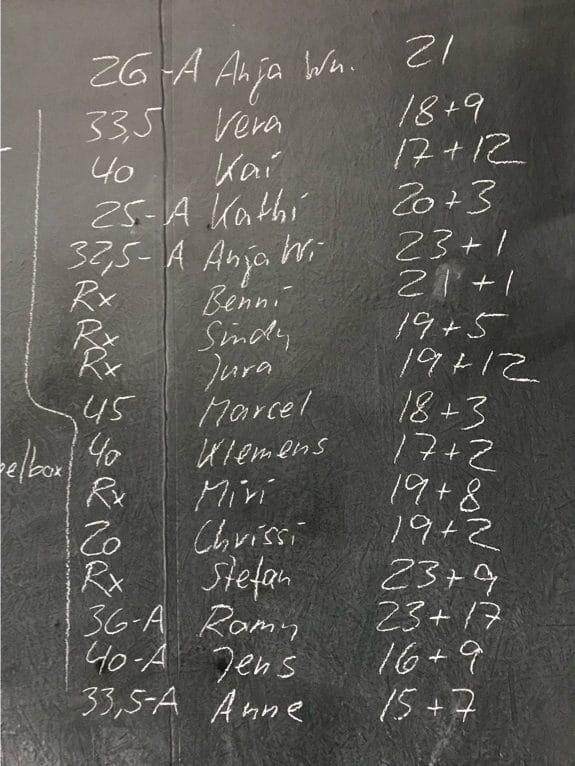 26-A Anja Wn. 21
33,5 Vera 18+9
40 Kai 17+12
25-A Kathi 20+3
32,5-A Anja Wi 23+1
Rx Benni 21+1
Rx Sindy 19+5
Rx Jura 19+12
45 Marcel 18+3
40 Klemens 17+2
Rx Miri 19+8
20 Chrissi 19+2
Rx Stefan 23+9
36-A Ramy 23+17
40-A Jens 16+9
33,5-A Anne 15+7